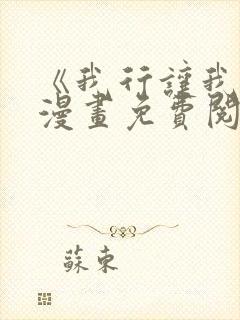 《我行讓我
漫畫免費閱
蘇東